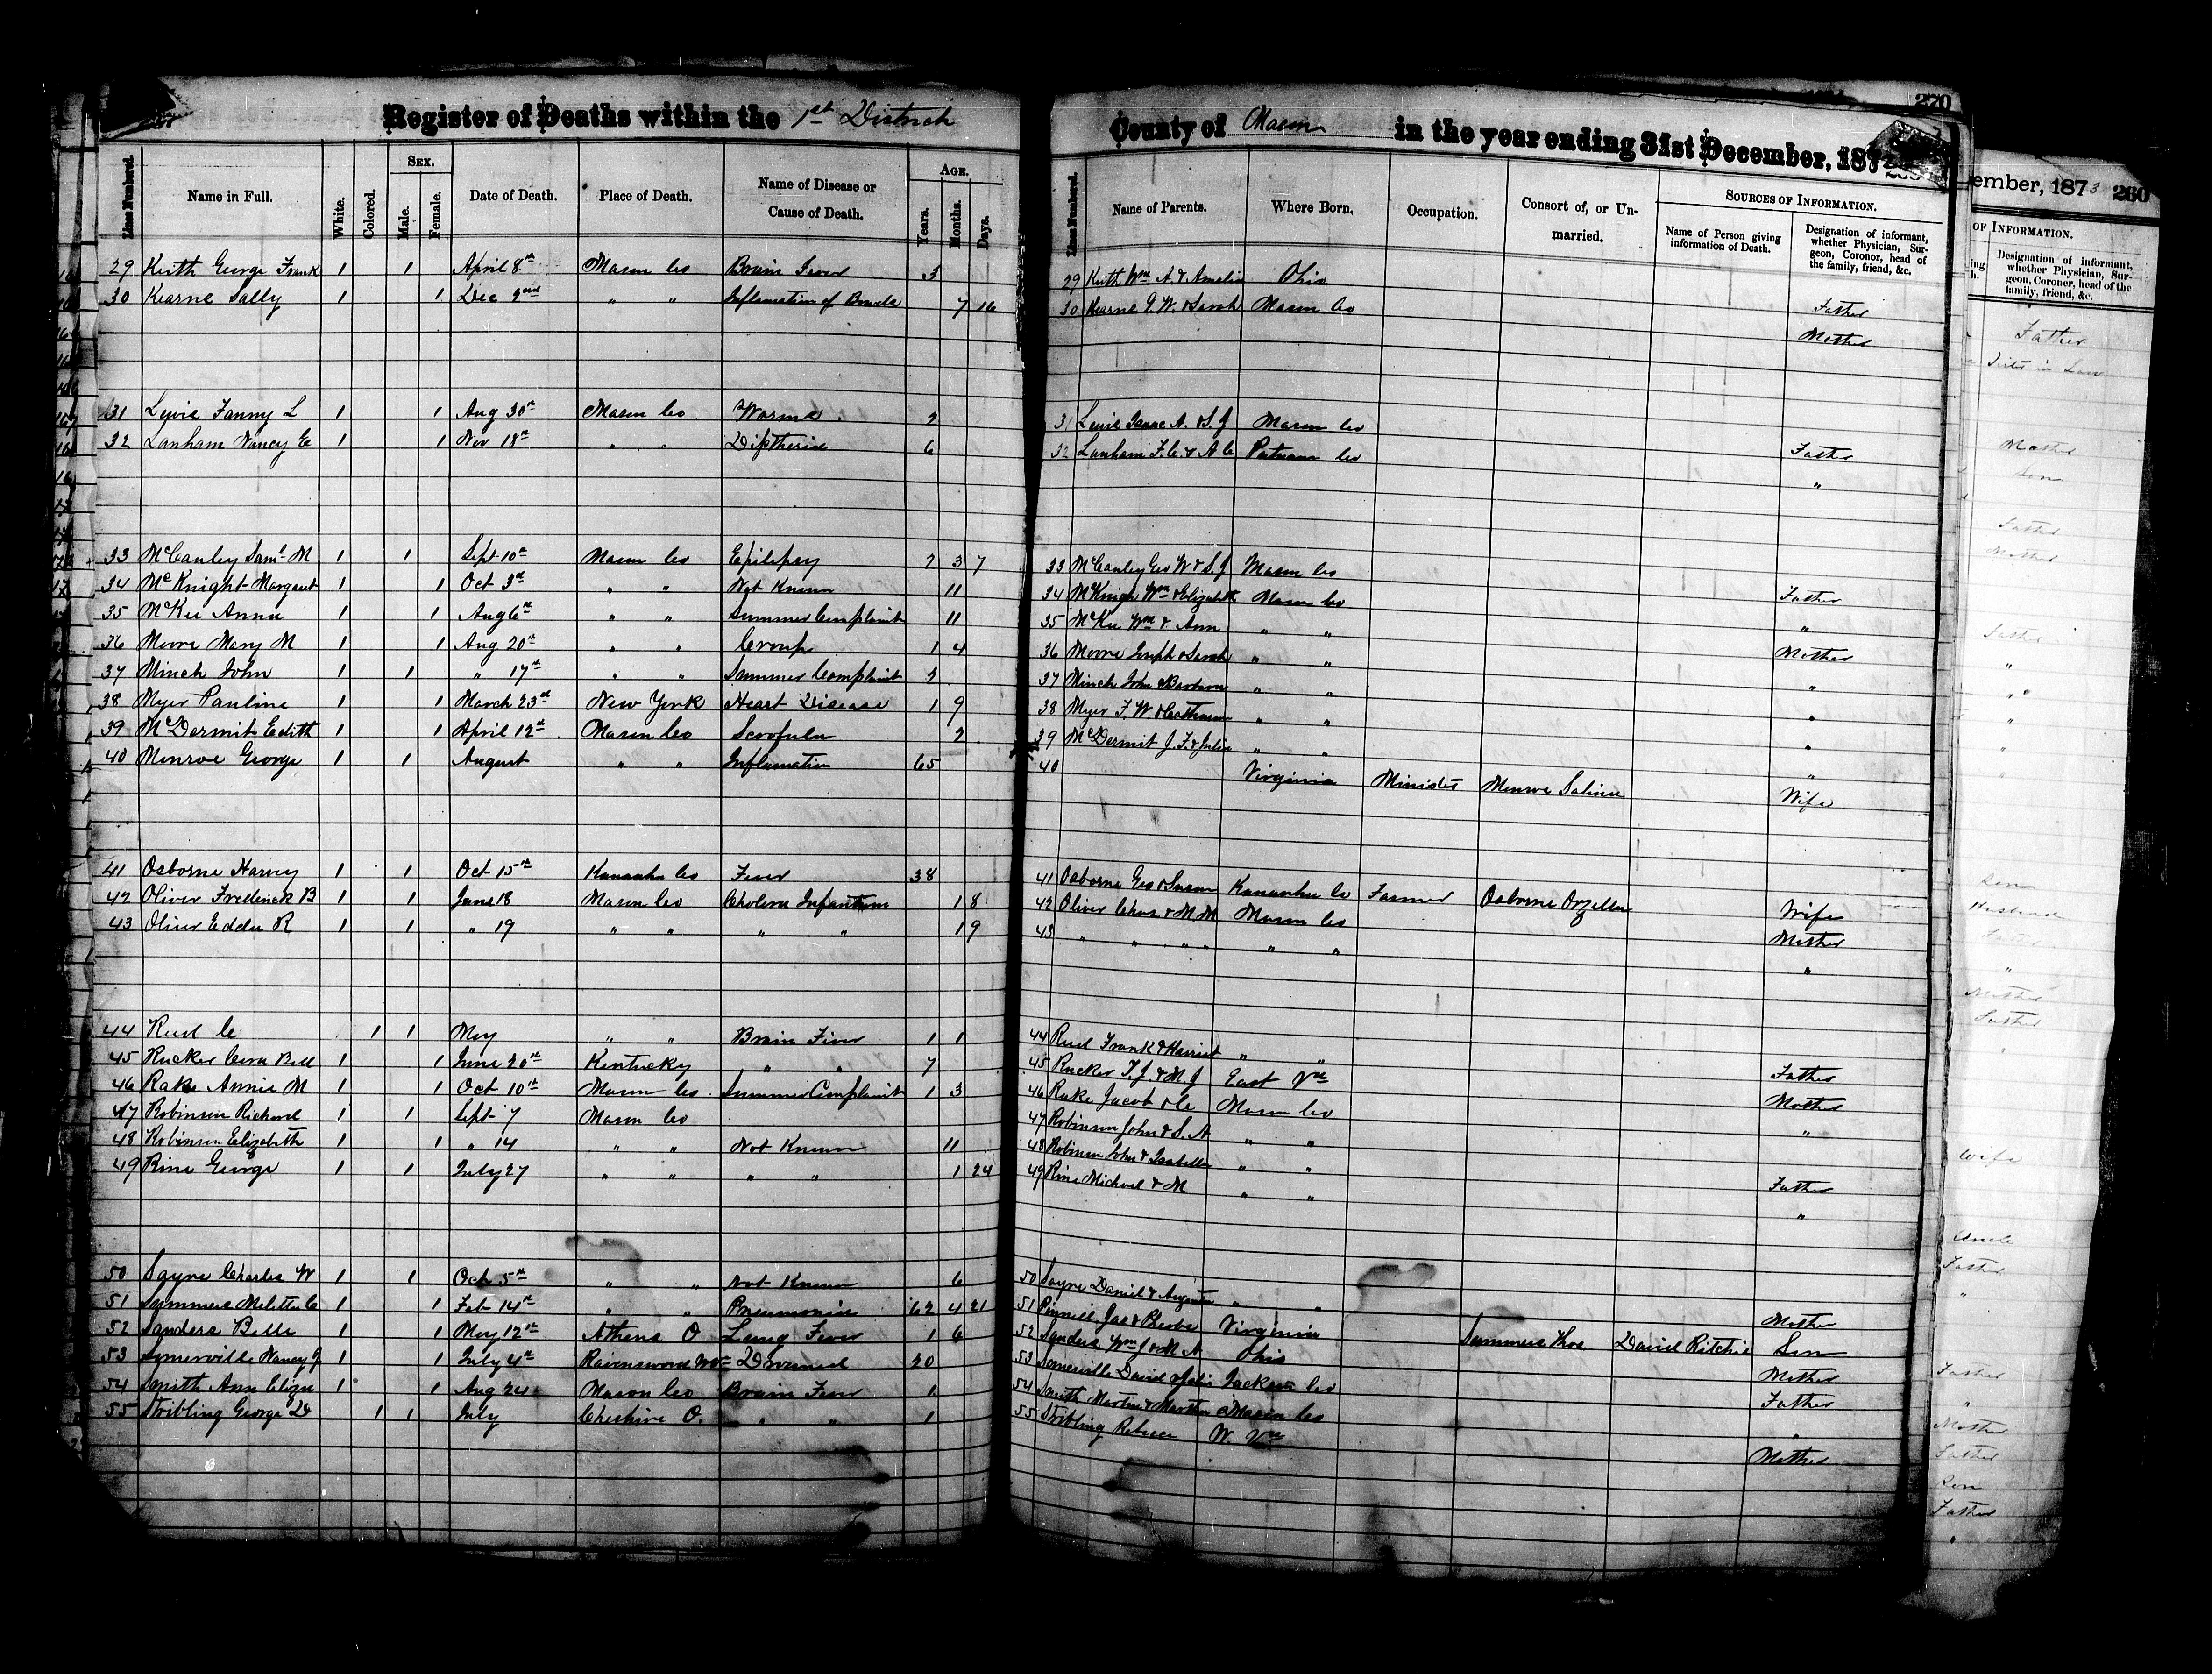 Register of Deaths within the 1st District
Lines Numbered. Name in Full. White. Colored. SEX. Male. Female. Date of Death. Place of Death. Name of Disease or Cause of Death. AGE. Years. Months. Days.
29 Keith George Frank 1 1 April 8th Mason Co Brain Fever 3
30 Kearns Sally 1 1 Dec 2nd " " Inflamation of Bowels 7 16
31 Lewis Fanny L 1 1 Aug 30th Mason Co Worms 2
32 Lanham Nancy E 1 1 Nov 18th " " Diptheria 6
33 McCauley Saml M 1 1 Sept 10th Mason Co Epilepsy 2 3 7
34 McKnight Margaret 1 1 Oct 3d " " Not Known 11
35 McKee Annie 1 1 Aug 6th " " Summer Complaint 11
36 Moore Mary M 1 1 Aug 20th " " Croup 1 4
37 Minch John 1 1 " 17th " " Summer Complaint 2
38 Myer Pauline 1 1 March 23d New York Heart Disease 1 9
39 McDermit Edith 1 1 April 12th Mason Co Scrofula 2
40 Monroe George 1 1 August " " Inflamation 65
41 Osborne Harvey 1 1 Oct 15th Kanawha Co Fever 38
42 Oliver Frederick B 1 1 June 18 Mason Co Cholera Infantum 1 8
43 Oliver Eddie R 1 1 " 19 " " " " 1 9
44 Reed C 1 1 May " " Brain Fever 1 1
45 Rucker Cora Bell 1 1 June 20th Kentucky " " 7
46 Rake Annie M 1 1 Oct 10th Mason Co Summer Complaint 1 3
47 Robinson Richard 1 1 Sept 7 Mason Co
48 Robinson Elizabeth 1 1 " 14 " " Not Known 11
49 Rine George 1 1 July 27 " " " " 1 24
50 Sayre Charles W 1 1 Oct 5th " " Not Known 6
51 Summers Melitta C 1 1 Feb 14th " " Pneumonia 62 4 21
52 Sanders Belle 1 1 May 12th Athens O Lung Fever 1 6
53 Somerville Nancy J 1 1 July 4th Ravenswood WVa Drowned 20
54 Smith Ann Eliza 1 1 Aug 24 Mason Co Brain Fever 1
55 Stribling George W 1 1 July Cheshire O. " " 1
270
County of Mason in the year ending 31st December, 187
Lines Numbered. Name of Parents. Where Born. Occupation. Consort of, or Unmarried. SOURCES OF INFORMATION. Name of Person giving information of Death. Designation of informant, whether Physician, Surgeon, Coronor, head of the family, friend, &c.
29 Keith Wm A. & Amelia Ohio Father
30 Kearns G. W. & Sarah Mason Co Mother
31 Lewis Isaac A. & S. J Mason Co Father
32 Lanham F. C. & A C Putnam Co "
33 McCauley Geo W & S. J Mason Co Father
34 McKnight Wm & Elizabeth Mason Co "
35 McKee Wm & Ann " " Mother
36 Moore Joseph & Sarah " " "
37 Minch John & Barbara " " "
38 Myer F. W. & Catherine " " "
39 McDermit J. F. & Julia " " "
40 Virginia Minister Monroe Salina Wife
41 Osborne Geo & Susan Kanawha Co Farmer Osborne Orzella Wife
42 Oliver Chas & M M Mason Co Mother
43 " " " " " " "
44 Reed Frank & Harriet " " Father
45 Rucker T. J. & M. J East Va Mother
46 Rake Jacob & C Mason Co "
47 Robinson John & S. A " "
48 Robinson John & Isabella " " Father
49 Rine Michael & M " " "
50 Sayre Daniel & Augusta " " Mother
51 Pinnell Jas & Pheobe Virginia Summers Thos David Ritchie Son
52 Sanders Wm J & M A Ohio Mother
53 Somerville David & Julia Jackson Co Father
54 Smith Martin & Martha Mason Co "
55 Stribling Rebecca W. Va Mother
ember, 1873 260
OF INFORMATION.
Designation of informant, whether Physician, Surgeon, Coroner, head of the family, friend, &c.
Father
Sister in Law
Mother
Son
Father
Mother
Father
"
"
"
"
Son
Husband
Father
"
Mother
Father
Wife
Uncle
Father
"
Father
"
Mother
Father
Son
Father
"